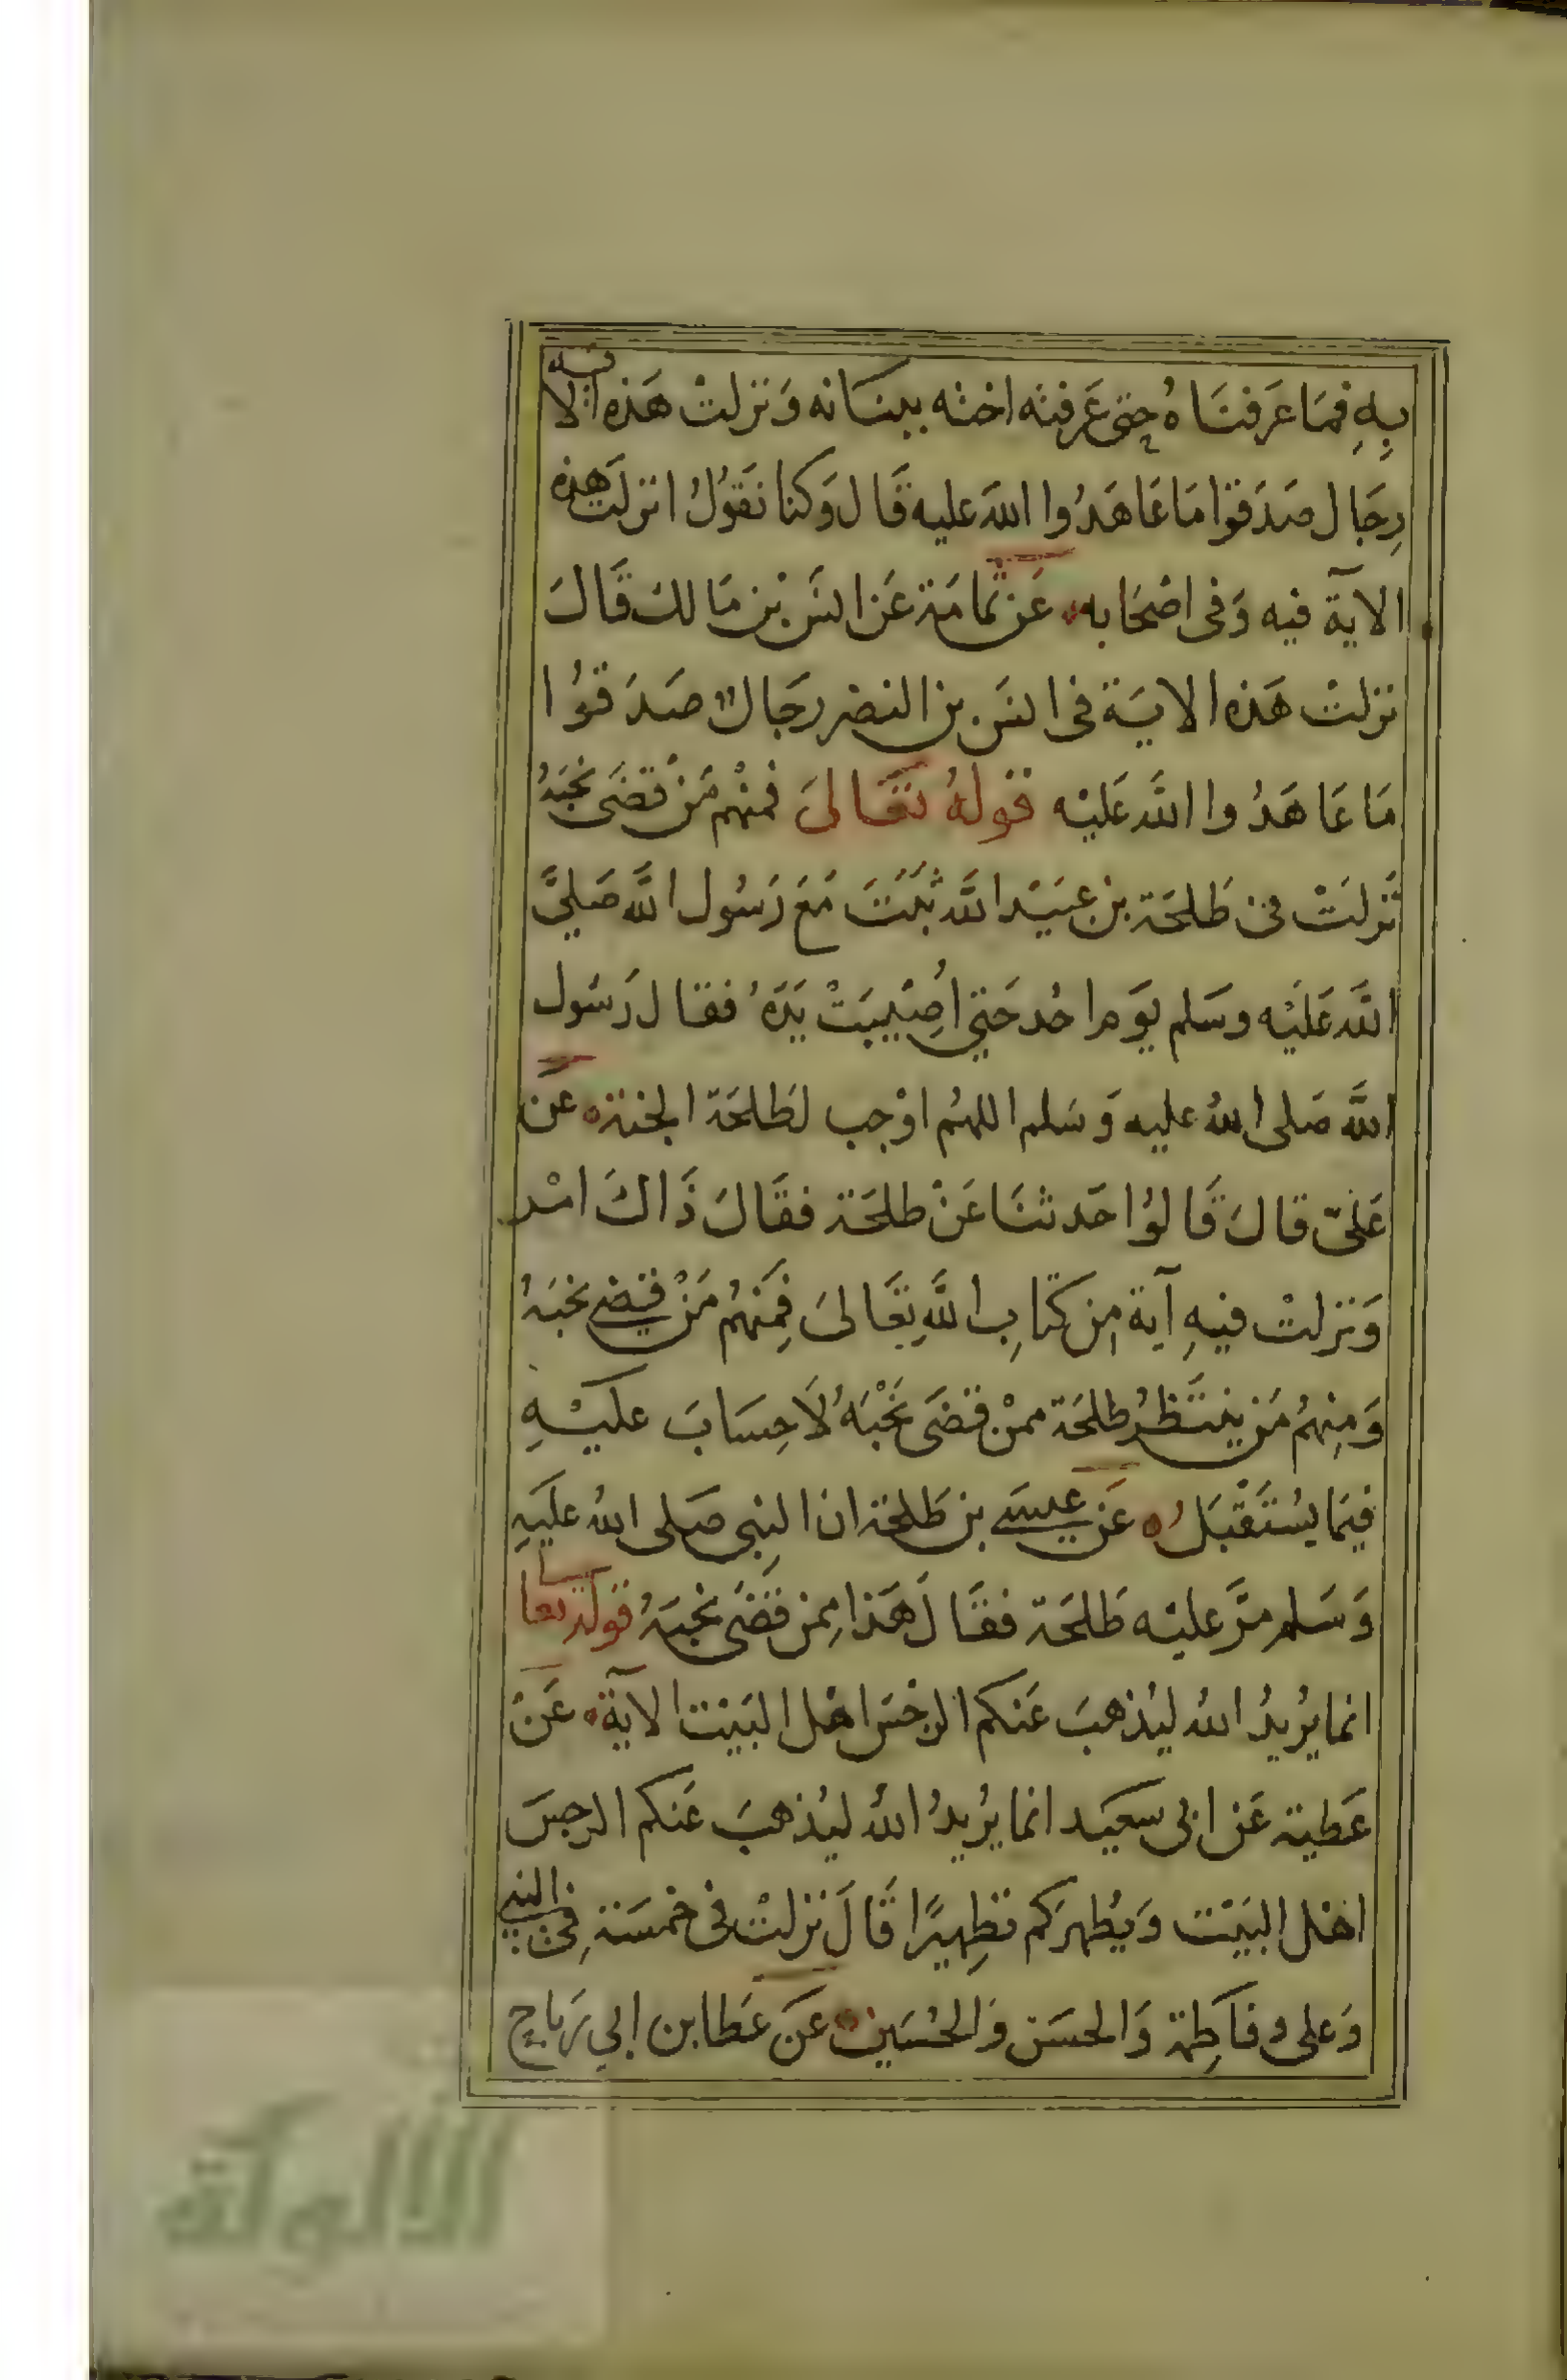 بِهِ فمَا عَرَفنَاهُ حتى عَرفته اخته ببنانه وَنزلتْ هَذه الاية
رِجَال صَدَقوا مَا عَاهَدُوا اللهَ عليه قَال وَكنا نقوُلُ انزلت هذه
الآية فيه وَفى اصْحَابه عَن ثمامَة عَن انسَ بْن مَالك قَالَ
نزلتْ هَذه الايَة فى انسَ بن النضر رجَالٌ صَدَقوُا
مَا عَاهَدُوا اللَّه عَليْه قولهُ تعَالىَ فمنْهم مَنْ قضَى نحْبَهُ
نَزلَتْ فى طَلحَة بن عبيْد اللَّه ثبَتَ مَعَ رَسُول اللَّه صَلىَّ
اللَّه عَليْه وسَلم يوَم احُد حَتي أصِيبَتْ يَدَهُ فقال رَسوُل
اللَّه صَلى اللهُ عليه وَسَلم اللهُم اوْجب لطَلحَة الجنة عَن
عَلىّ قالَ قَالوُا حَدثنَا عَنْ طلحَة فقَالَ ذَاكَ امْر
وَنزلتْ فيهِ آية مِن كتَابِ اللَّهِ تعَالىَ فمِنهُم مَنْ قضي نحبَهُ
وَمنِهُم مَن ينتَظرُ طلحَة ممنْ قضَى نحْبَهُ لَا حِسَابَ عليْهِ
فيمَا يسُتَقْبَل عَن عيسَي بن طَلحة ان النبِى صَلى اللهُ عليَهِ
وَسَلم مرَّ عليْه طَلحَة فقَالَ هَذا ممِن قضَى نحبَهُ قوله تعا
انما يرُيدُ اللهُ ليُذهبَ عَنكم الرجْسَ اهْل البَيْت الآية عَنْ
عَطية عَن ابى سعيَد انما يرُيدُ اللهُ ليُذهبَ عَنكم الرجسَ
اهْل البَيْت وَيطُهرَكم تطهِيرًا قَالَ نزلتْ فى خمسَة فى النبي
وَعلى وفاطِمة وَالحسَن وَالحُسَين عَن عَطا بن ابي رَباح
الألوكة